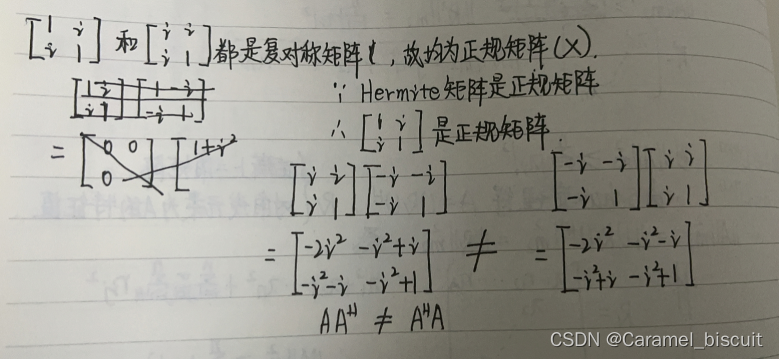 [1 i; i 1] 和 [i i; i 1] 都是复对称矩阵, 故均为正规矩阵 (X).
[1 i; i 1] [1 -i; -i 1]
∵ Hermite矩阵是正规矩阵
= [0 0; 0 ] [1+i²
∴ [1 i; i 1] 是正规矩阵.
[i i; i 1] [-i -i; -i 1] [-i -i; -i 1] [i i; i 1]
= [-2i² -i²+i; -i²-i -i²+1] ≠ = [-2i² -i²-i; -i²+i -i²+1]
AAᴴ ≠ AᴴA
CSDN @Caramel_biscuit